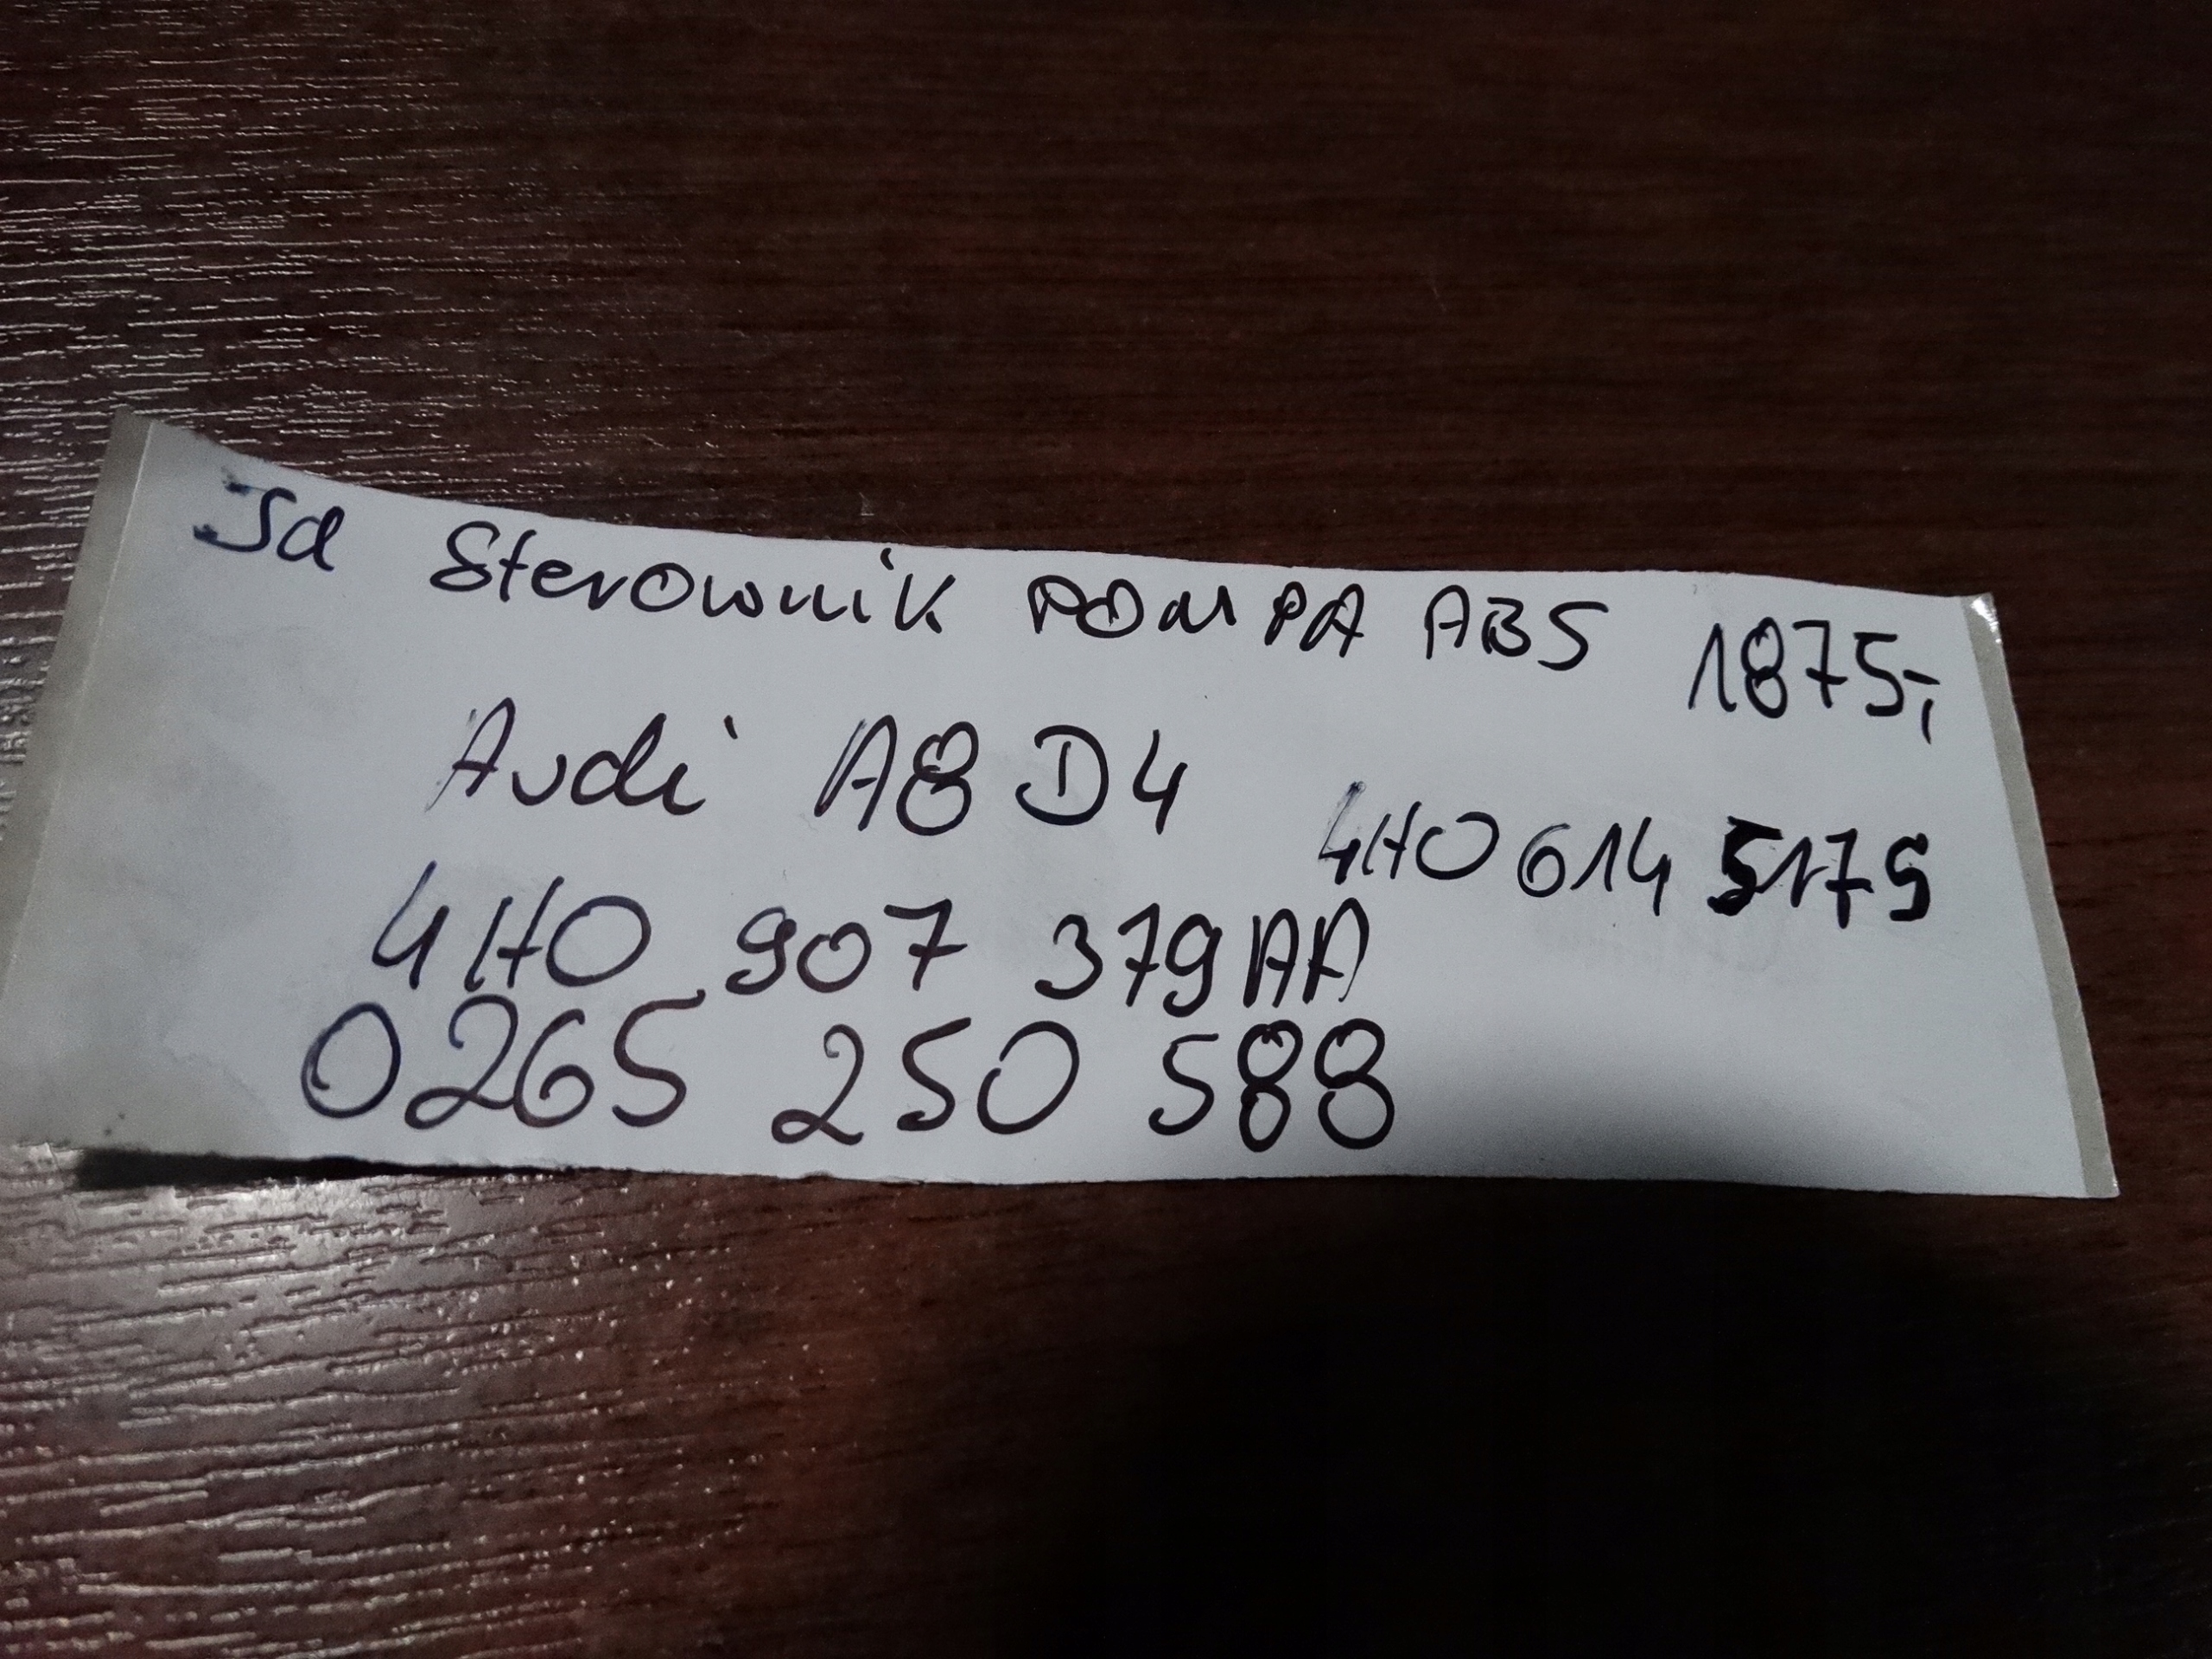 Jd Sterownik POMPA ABS 1875,-
Audi A8 D4
4H0 614 517S
4H0 907 379AA
0265 250 588